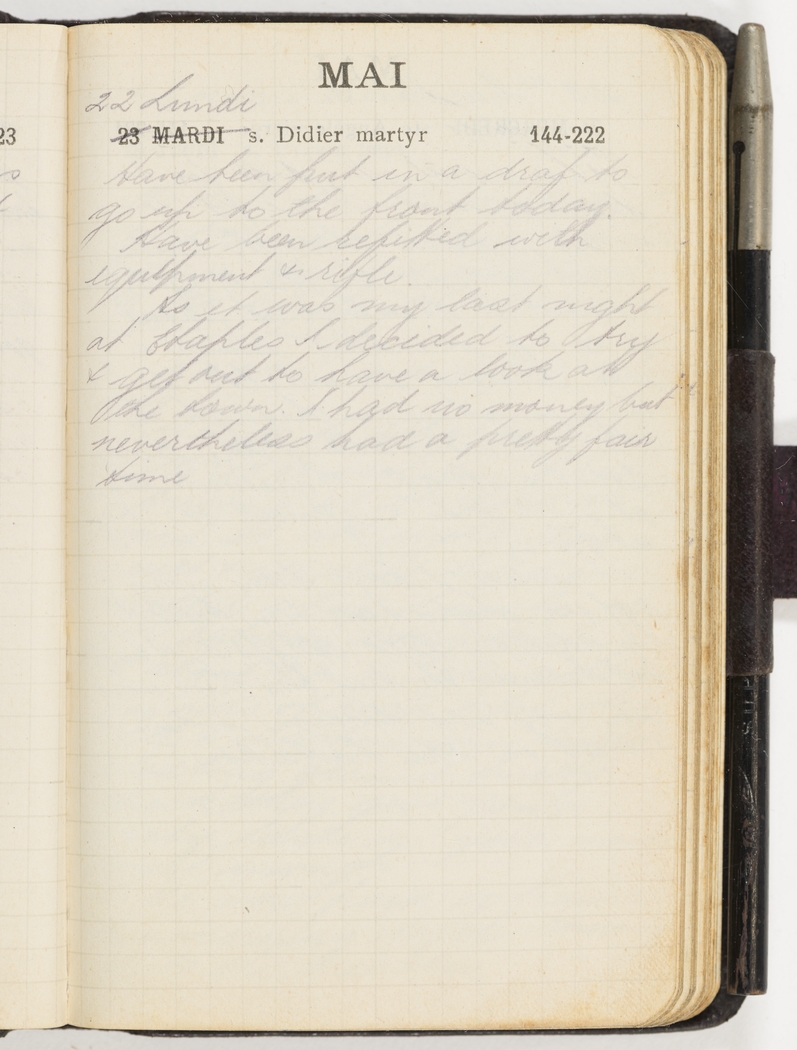 MAI
22 Lundi
23 MARDI s. Didier martyr 144-222
Have been put in a draf to
go up to the front today.
Have been refitted with
equipment & rifle.
As it was my last night
at Etaples I decided to try
& get out to have a look at
the town. I had no money but
nevertheless had a pretty fair
time
23
s